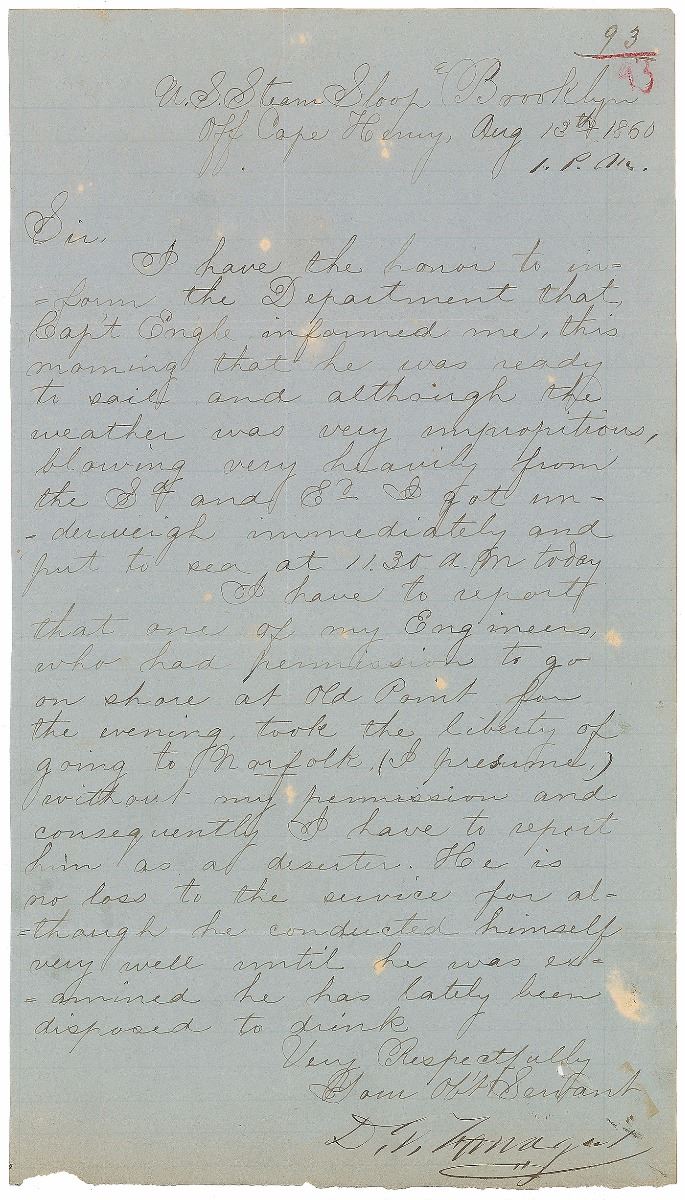 93
93
U. S. Steam Sloop "Brooklyn
Off Cape Henry, Aug 13th 1860
1. P. M.
Sir.
I have the honor to in=
=form the Department that,
Capt Engle informed me, this
morning that he was ready
to sail and although the
weather was very unpropitious,
blowing very heavily from
the Sd and Ed I got un-
-derweigh immediately and
put to sea at 11.30 A. M today
I have to report
that one of my Engineers,
who had permission to go
on shore at Old Point for
the evening, took the liberty of
going to Norfolk, (I presume,)
without my permission and
consequently I have to report
him as a deserter. He is
no loss to the service for al-
=though he conducted himself
very well until he was ex=
=amined he has lately been
disposed to drink
Very Respectfully
Your Obt Servant
D. G. Farragut